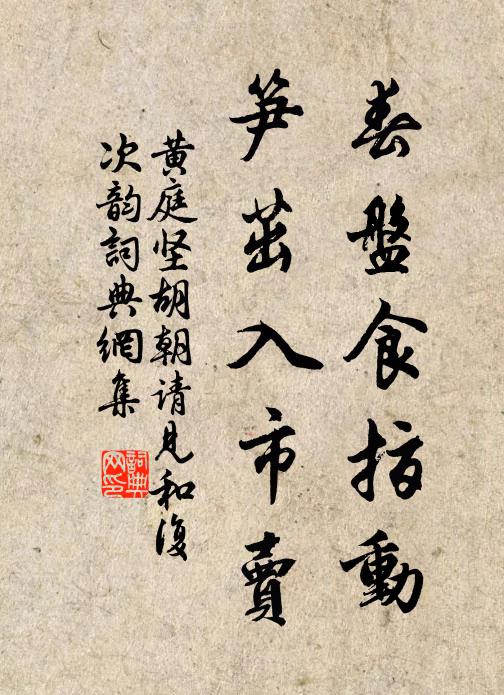 春盤食指動
笋茁入市賣
黄庭坚胡朝请見和復
次韵詞典網集
詞典
网印